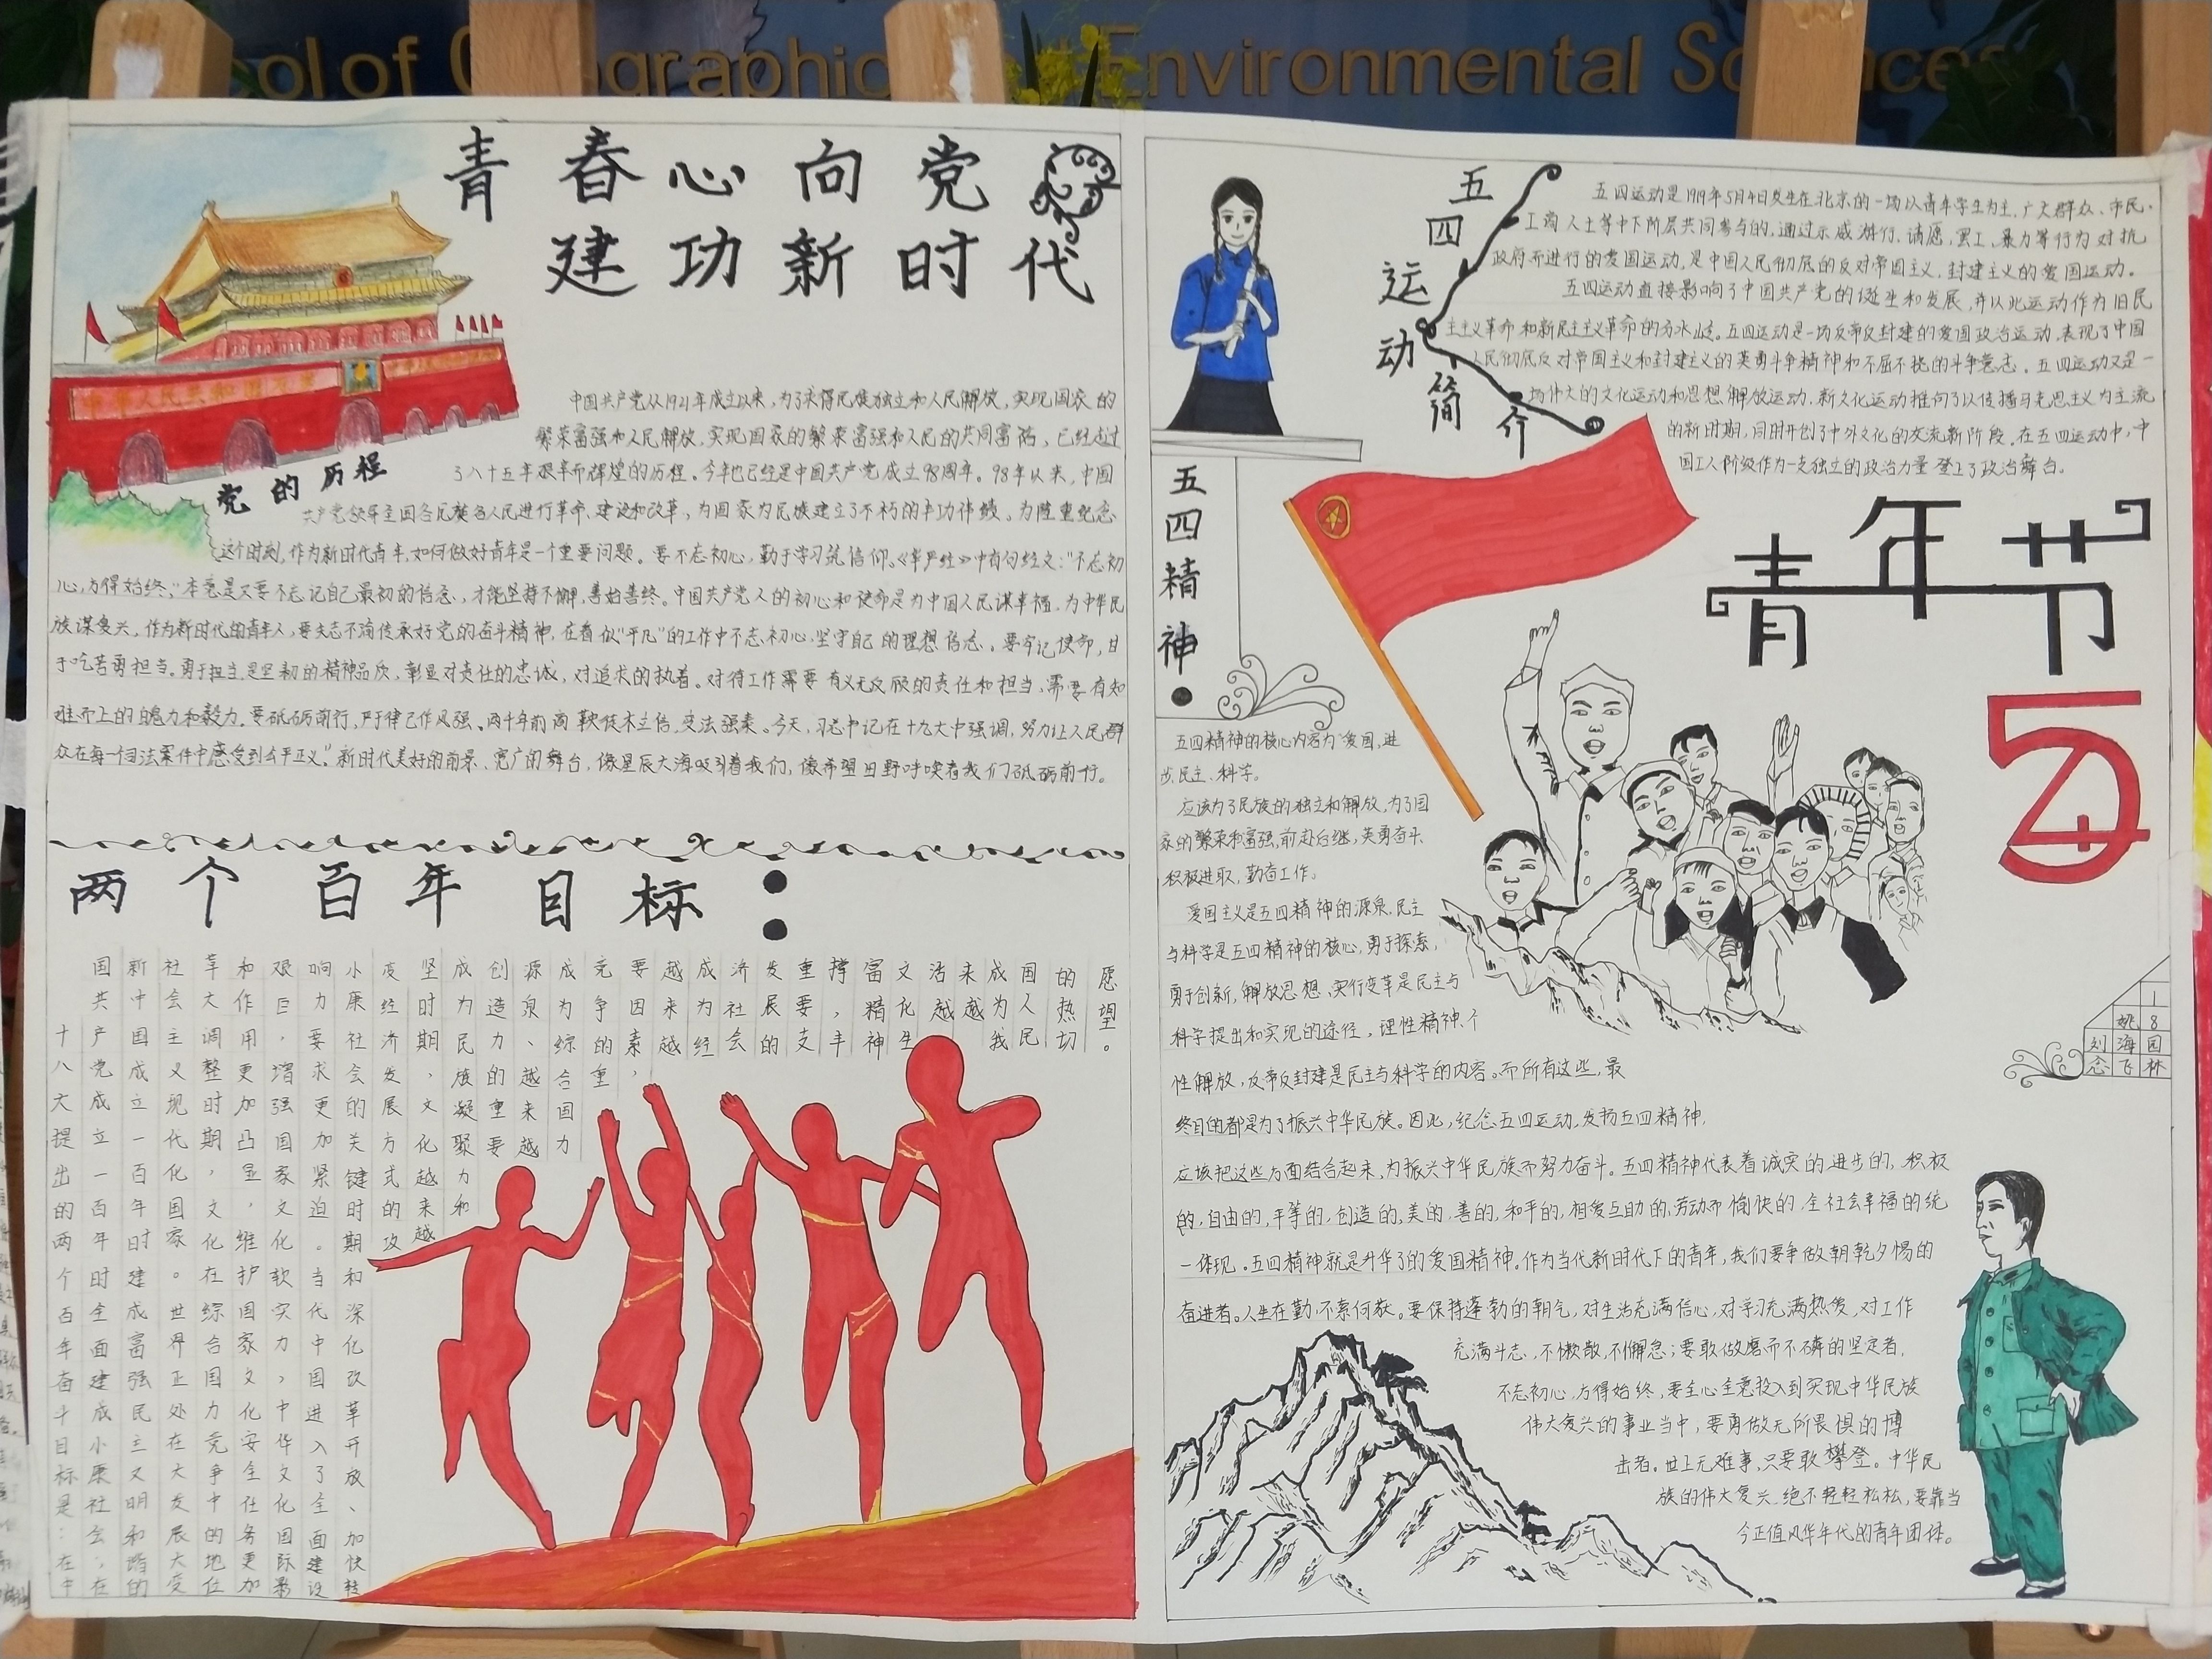 Environmental
青春心向党
建功新时代
党的历程
中国共产党从1921年成立以来，为了求得民族独立和人民解放，实现国家的
繁荣富强和人民解放，实现国家的繁荣富强和人民的共同富裕，已经走过
了八十五年艰辛而辉煌的历程。今年也已经是中国共产党成立98周年。98年以来，中国
共产党领导全国各民族各人民进行革命、建设和改革，为国家为民族建立了不朽的丰功伟绩。为隆重纪念
这个时刻，作为新时代青年，如何做好青年是一个重要问题。要不忘初心，勤于学习筑信仰。《华严经》中有句经文：“不忘初
心，方得始终，”本意是又要不忘记自己最初的信念，才能坚持不懈，善始善终。中国共产党人的初心和使命是为中国人民谋幸福，为中华民
族谋复兴。作为新时代的青年人，要矢志不渝传承好党的奋斗精神，在看似“平凡”的工作中不忘初心，坚守自己的理想信念。要牢记使命，甘
于吃苦勇担当。勇于担当是坚韧的精神品质，彰显对责任的忠诚，对追求的执着。对待工作需要有义无反顾的责任和担当，需要有知
难而上的魄力和毅力。要砥砺前行，严于律己作风强。两千年前商鞅徙木立信，变法强秦。今天，习总书记在十九大中强调，努力让人民群
众在每一个司法案件中感受到公平正义。”新时代美好的前景、宽广的舞台，像星辰大海吸引着我们，像希望田野呼唤着我们砥砺前行。
两个百年目标：
十八大提出的两个百年奋斗目标是：在中
国共产党成立一百年时全面建成小康社会，在
新中国成立一百年时建成富强民主文明和谐的
社会主义现代化国家。世界正处在大发展大变
革大调整时期，文化在综合国力竞争中的地位
和作用更加凸显，维护国家文化安全任务更加
艰巨，增强国家文化软实力，中华文化国际影
响力要求更加紧迫。当代中国进入了全面建设
小康社会的关键时期和深化改革开放、加快转
变经济发展方式的攻
坚时期，文化越来越
成为民族凝聚力和
创造力的重要
源泉、越来越
成为综合国力
竞争的重
要因素，
越来越
成为经
济社会
发展的
重要支
撑，丰
富精神
文化生
活越
来越
成为我
国人民
的热切
愿望。
五四运动简介
五四运动是1919年5月4日发生在北京的一场以青年学生为主，广大群众、市民、
工商人士等中下阶层共同参与的，通过示威游行、请愿、罢工、暴力等行为对抗
政府而进行的爱国运动，是中国人民彻底的反对帝国主义、封建主义的爱国运动。
五四运动直接影响了中国共产党的诞生和发展，并以此运动作为旧民
主主义革命和新民主主义革命的分水岭。五四运动是一场反帝反封建的爱国政治运动，表现了中国
人民彻底反对帝国主义和封建主义的英勇斗争精神和不屈不挠的斗争意志。五四运动又是一
场伟大的文化运动和思想解放运动，新文化运动推向了以传播马克思主义为主流
的新时期，同时开创了中外文化的交流新阶段。在五四运动中，中
国工人阶级作为一支独立的政治力量登上了政治舞台。
青年节
54
五四精神
五四精神的核心内容为“爱国、进
步、民主、科学。
应该为了民族的独立和解放，为了国
家的繁荣和富强，前赴后继，英勇奋斗，
积极进取，勤奋工作。
爱国主义是五四精神的源泉，民主
与科学是五四精神的核心，勇于探索，
勇于创新，解放思想、实行变革是民主与
科学提出和实现的途径，理性精神、个
性解放，反帝反封建是民主与科学的内容。而所有这些，最
终目的都是为了振兴中华民族。因此，纪念五四运动，发扬五四精神，
应该把这些方面结合起来，为振兴中华民族而努力奋斗。五四精神代表着诚实的进步的，积极
的，自由的，平等的，创造的，美的，善的，和平的，相爱互助的，劳动而愉快的，全社会幸福的统
一体现。五四精神就是升华了的爱国精神。作为当代新时代下的青年，我们要争做朝乾夕惕的
奋进者。人生在勤，不索何获。要保持蓬勃的朝气，对生活充满信心，对学习充满热爱，对工作
充满斗志，不懒散，不懈怠；要敢做磨而不磷的坚定者，
不忘初心，方得始终，要全心全意投入到实现中华民族
伟大复兴的事业当中，要勇做无所畏惧的搏
击者。世上无难事，只要敢攀登。中华民
族的伟大复兴，绝不轻轻松松，要靠当
今正值风华年代的青年团体。
18园林
姚海飞
刘念